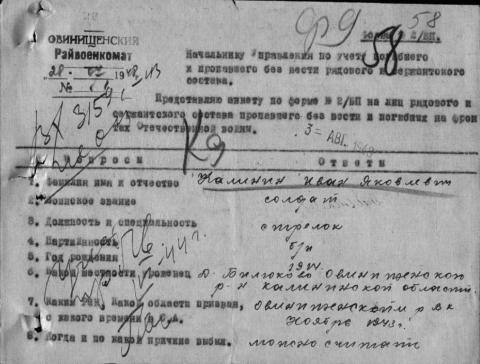 58
ОВИНИЩЕНСКИЙ
Райвоенкомат
Форма № 2/БП.
58
Начальнику Управления по учету погибшего
и пропавшего без вести рядового и сержантского
состава.
28
194
№
Представляю анкету по форме № 2/БП на лиц рядового и
сержантского состава пропавшего без вести и погибших на фрон
тах Отечественной войны.
3 = АВГ. 194
Вопросы
Ответы
1. Фамилия имя и отчество Калинин Иван Яковлевич
2. Воинское звание солдат
3. Должность и специальность стрелок
4. Партийность б/п
5. Год рождения
6. Какой местности уроженец Овинищенский
р-н Калининской области
7. Каким РВК, какой области призван, Овинищенским рвк
с какого времени в С.А. Ноябрь 1943 г.
8. Когда и по какой причине выбыл. можно считать
44 г.